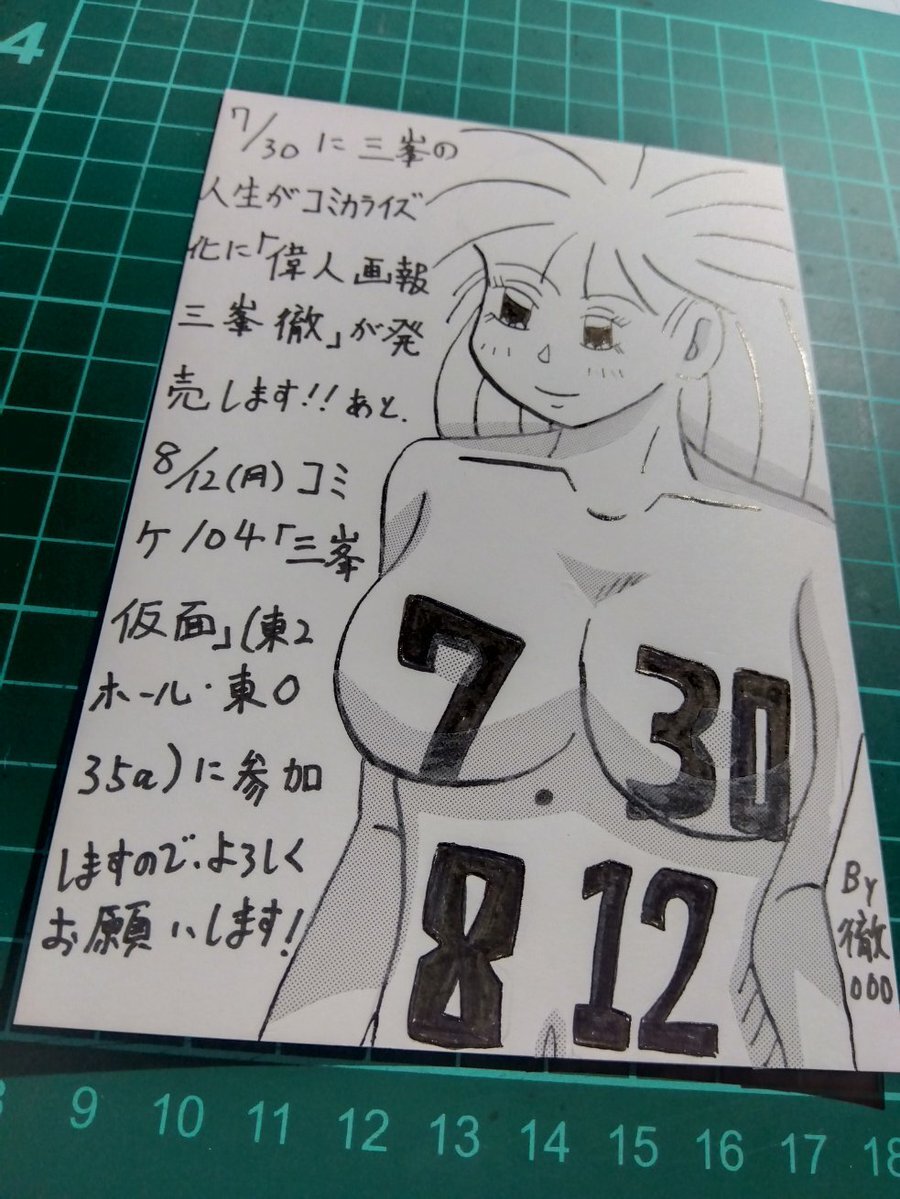 7/30に三峯の
人生がコミカライズ
化に「偉人画報
三峯徹」が発
売します!!あと、
8/12(月)コミ
ケ104「三峯
仮面」(東2
ホール・東O
35a)に参加
しますので、よろしく
お願いします!
7 30
8 12
By
徹
000
4
9 10 11 12 13 14 15 16 17 18